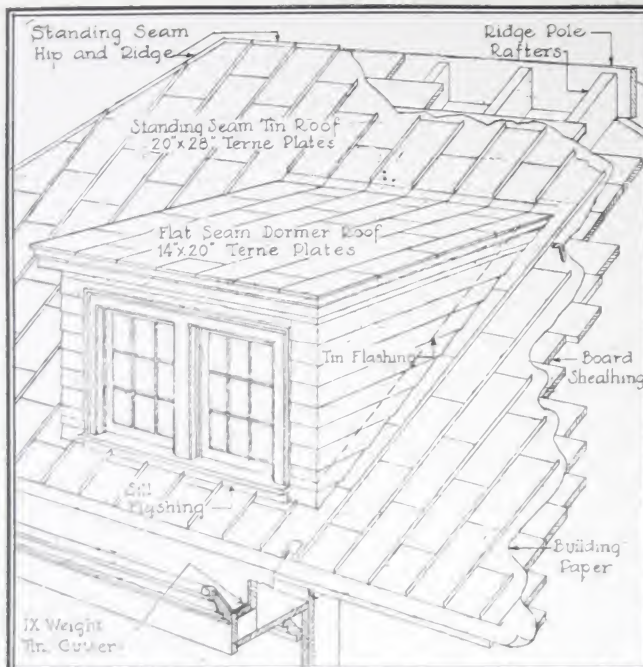 Standing Seam
Hip and Ridge
Ridge Pole
Rafters
Standing Seam Tin Roof
20"x28" Terne Plates
Flat Seam Dormer Roof
14"x20" Terne Plates
Tin Flashing
Board
Sheathing
Sill
Flashing
Building
Paper
IX Weight
Tin Gutter